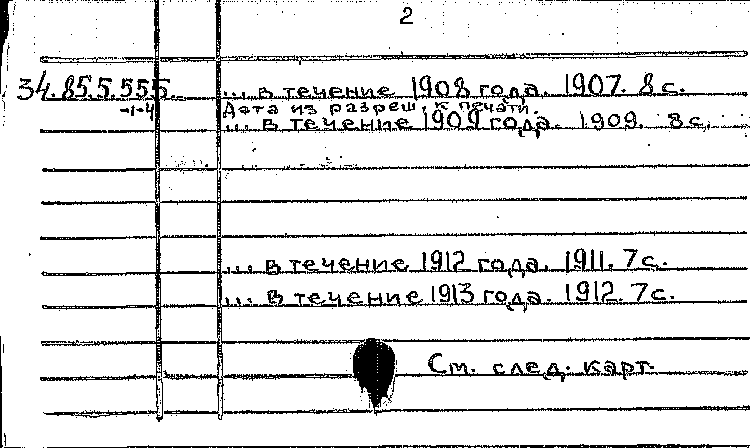 2
34.85.5.555. ... в течение 1908 года. 1907. 8 с.
-1-4 Дата из разреш. к печати.
... в течение 1909 года. 1909. 8 с.
... в течение 1912 года. 1911. 7 с.
... в течение 1913 года. 1912. 7 с.
См. след. карт.